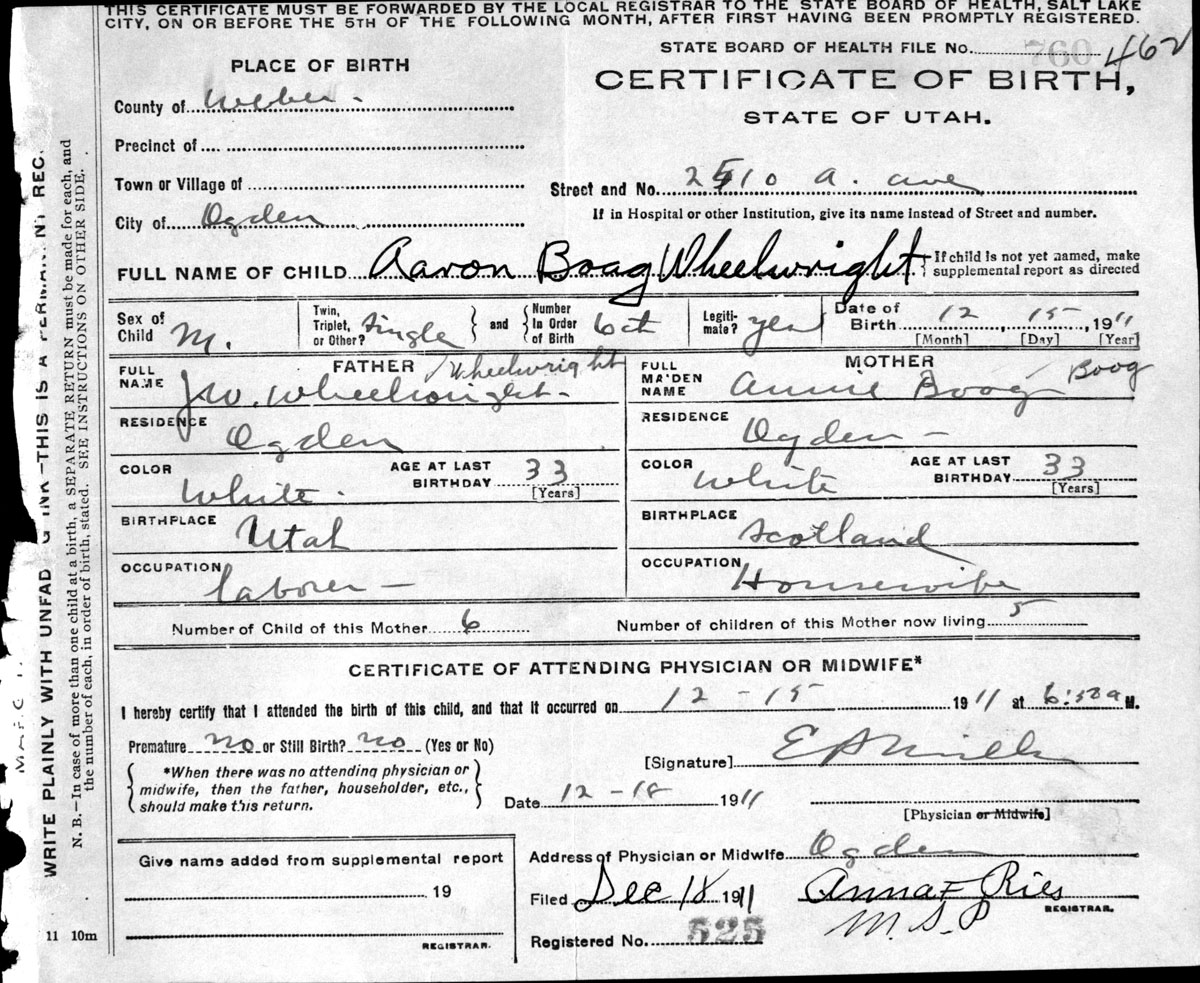 THIS CERTIFICATE MUST BE FORWARDED BY THE LOCAL REGISTRAR TO THE STATE BOARD OF HEALTH, SALT LAKE
CITY, ON OR BEFORE THE 5TH OF THE FOLLOWING MONTH, AFTER FIRST HAVING BEEN PROMPTLY REGISTERED.
STATE BOARD OF HEALTH FILE No. 760 462
PLACE OF BIRTH
CERTIFICATE OF BIRTH,
STATE OF UTAH.
County of Weber.
Precinct of
Town or Village of
Street and No. 2510 A. Ave
City of Ogden
If in Hospital or other Institution, give its name instead of Street and number.
FULL NAME OF CHILD Aaron Boag Wheelwright { If child is not yet named, make
supplemental report as directed
Sex of Child M. Twin, Triplet, or Other? Single } and { Number In Order of Birth 6th Legiti-mate? yes Date of Birth 12, 15, 1911
[Month] [Day] [Year]
FATHER Wheelwright
MOTHER Boog
FULL NAME J.W. Wheelwright-
FULL MAIDEN NAME Annie Boog
RESIDENCE Ogden
RESIDENCE Ogden -
COLOR White. AGE AT LAST BIRTHDAY 33 [Years]
COLOR White AGE AT LAST BIRTHDAY 33 [Years]
BIRTHPLACE Utah
BIRTHPLACE Scotland
OCCUPATION laborer -
OCCUPATION Housewife
Number of Child of this Mother 6 Number of children of this Mother now living 5
CERTIFICATE OF ATTENDING PHYSICIAN OR MIDWIFE*
I hereby certify that I attended the birth of this child, and that it occurred on 12 - 15 1911 at 6:50a M.
Premature no or Still Birth? no (Yes or No)
{ *When there was no attending physician or
midwife, then the father, householder, etc.,
should make this return. }
[Signature]
Date 12 - 18 1911
[Physician or Midwife]
Give name added from supplemental report
19
REGISTRAR.
Address of Physician or Midwife Ogden
Filed Dec 18 1911 Anna F Ries
REGISTRAR.
M.S.P
Registered No. 525
11 10m
WRITE PLAINLY WITH UNFADING INK—THIS IS A PERMANENT REC.
N. B.—In case of more than one child at a birth, a SEPARATE RETURN must be made for each, and
the number of each, in order of birth, stated. SEE INSTRUCTIONS ON OTHER SIDE.